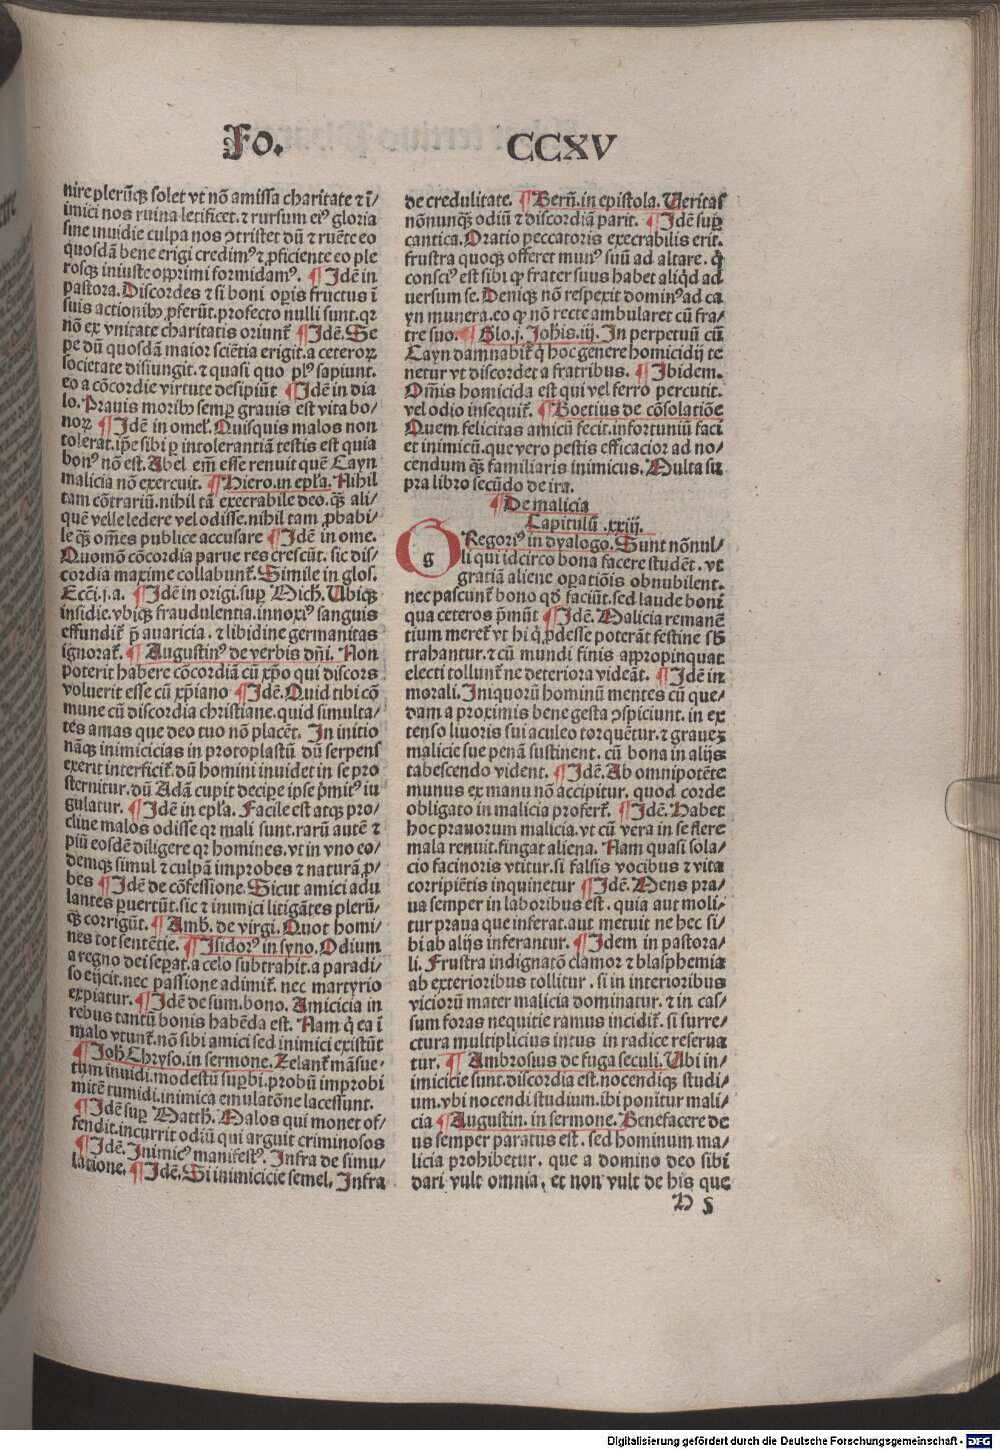 Fo. CCXV
nire pleruͤqꝫ solet vt nō amissa charitate ⁊ ī/
imici nos ruina letificet. ⁊ rursum eiꝰ gloria
sine inuidie culpa nos ꝯtristet dū ⁊ ruēte eo
quosdā bene erigi credimꝰ ⁊ ꝓficiente eo ple
rosqꝫ iniuste opprimi formidamꝰ. ¶ Idē in
pastora. Discordes ⁊ si boni oꝑis fructus ī
suis actionibꝰ ꝓferūt. profecto nulli sunt. qꝛ
nō ex vnitate charitatis oriunt᷑ ¶ Idē. Se
pe dū quosdā maior sciētia erigit. a ceteroꝝ
societate disiungit. ⁊ quasi quo plꝰ sapiunt.
eo a cōcordie virtute desipiūt ¶ Idē in dia
lo. Prauis moribꝰ semꝑ grauis est vita bo/
noꝝ ¶ Idē in omel̄. Quisquis malos non
tolerat. ip̄e sibi ꝑ intolerantiā testis est quia
bonꝰ nō est. Abel em̄ esse renuit quē Cayn
malicia nō exercuit. ¶ Hiero. in ep̄la. Nihil
tam cōtrariū. nihil tā execrabile deo. qꝫ ali/
quē velle ledere vel odisse. nihil tam ꝓbabi/
le qꝫ om̄es publice accusare ¶ Idē in ome.
Quomō cōcordia parue res crescūt. sic dis/
cordia maxime collabunt᷑. Simile in glos.
Ecci. j. a. ¶ Idē in origi. suꝑ Mich. Ubiqꝫ
insidie. vbiqꝫ fraudulentia. innoxiꝰ sanguis
effundit᷑ p̄ auaricia. ⁊ libidine germanitas
ignorat᷑. ¶ Augustinꝰ de verbis dn̄i. Non
poterit habere cōcordiā cū xp̄o qui discors
voluerit esse cū xp̄iano ¶ Idē. Quid tibi cō
mune cū discordia christiane. quid simulta/
tes amas que deo tuo nō placēt. In initio
nāqꝫ inimicicias in protoplastū dū serpens
exerit interficit᷑. dū homini inuidet in se pro
sternitur. dū Adā cupit decipe ipse p̄mitꝰ iu
gulatur. ¶ Idē in ep̄la. Facile est atqꝫ pro/
cliue malos odisse qꝛ mali sunt. rarū autē ⁊
piū eosdē diligere qꝛ homines. vt in vno eo/
demqꝫ simul ⁊ culpā improbes ⁊ naturā ꝓ/
bes ¶ Idē de cōfessione. Sicut amici adu
lantes ꝑuertūt. sic ⁊ inimici litigātes plerū/
qꝫ corrigūt. ¶ Amb. de virgi. Quot homi/
nes tot sentētie. ¶ Isidorꝰ in syno. Odium
a regno dei seꝑat. a celo subtrahit. a paradi/
so eijcit. nec passione adimit᷑. nec martyrio
expiatur. ¶ Idē de sum. bono. Amicicia in
rebus tantū bonis habēda est. Nam q̇ ea ī
malo vtunt᷑. nō sibi amici sed inimici existūt
¶ Joh̄ Chryso. in sermone. Zelant᷑ māsue/
tum inuidi. modestū suꝑbi. probū improbi
mitē tumidi. inimica emulatōne lacessunt.
¶ Idē suꝑ Matth. Malos qui monet of/
fendit. incurrit odiū qui arguit criminosos
¶ Idē. Inimicꝰ manifestꝰ. Infra de simu/
latione. ¶ Idē. Si inimicicie semel, Infra
de credulitate. ¶ Bern̄. in epistola. Ueritas
nōnunqꝫ odiū ⁊ discordiā parit. ¶ Idē suꝑ
cantica. Oratio peccatoris execrabilis erit.
frustra quoqꝫ offeret munꝰ suū ad altare. q̇
consciꝰ est sibi ꝙ frater suus habet aliqd ad
uersum se. Deniqꝫ nō respexit dominꝰ ad ca
yn munera. eo ꝙ nō recte ambularet cū fra/
tre suo. ¶ Glo. j. Joh̄is. iij. In perpetuū cū
Cayn damnabit᷑ q̇ hoc genere homicidij te
netur vt discordet a fratribus. ¶ Ibidem.
Om̄is homicida est qui vel ferro percutit.
vel odio insequit᷑. ¶ Boetius de cōsolatiōe
Quem felicitas amicū fecit. infortuniū faci
et inimicū. que vero pestis efficacior ad no/
cendum qꝫ familiaris inimicus. Multa su
pra libro secūdo de ira.
¶ De malicia
Capitulū .xxiij.
g
REgoriꝰ in dyalogo. Sunt nōnul/
li qui idcirco bona facere studēt. vt
gratiā aliene oꝑatiōis obnubilent.
nec pascunt᷑ bono qd̄ faciūt. sed laude boni
qua ceteros p̄mūt ¶ Idē. Malicia remanē
tium meret᷑ vt hi q̇ ꝓdesse poterāt festine sb̄
trahantur. ⁊ cū mundi finis appropinquat
electi tollunt᷑ ne deteriora videāt. ¶ Idē in
morali. Iniquorū hominū mentes cū que/
dam a proximis bene gesta ꝯspiciunt. in ex
tenso liuoris sui aculeo torquētur. ⁊ grauez
malicie sue penā sustinent. cū bona in alijs
tabescendo vident. ¶ Idē. Ab omnipotēte
munus ex manu nō accipitur. quod corde
obligato in malicia profert᷑. ¶ Idē. Habet
hoc prauorum malicia. vt cū vera in se flere
mala renuit. fingat aliena. Nam quasi sola/
cio facinoris vtitur. si falsis vocibus ⁊ vita
corripiētis inquinetur ¶ Idē. Mens pra/
ua semper in laboribus est. quia aut moli/
tur praua que inferat. aut metuit ne hec si/
bi ab alijs inferantur. ¶ Idem in pastora/
li. Frustra indignatō clamor ⁊ blasphemia
ab exterioribus tollitur. si in interioribus
viciorū mater malicia dominatur. ⁊ in cas/
sum foras nequitie ramus incidit᷑. si surre/
ctura multiplicius intus in radice reserua
tur. ¶ Ambrosius de fuga seculi. Ubi in/
imicicie sunt. discordia est. nocendiqꝫ studi/
um. vbi nocendi studium. ibi ponitur mali/
cia ¶ Augustin. in sermone. Benefacere de
us semper paratus est. sed hominum ma/
licia prohibetur. que a domino deo sibi
dari vult omnia, et non vult de his que
D 5
Digitalisierung gefördert durch die Deutsche Forschungsgemeinschaft - DFG